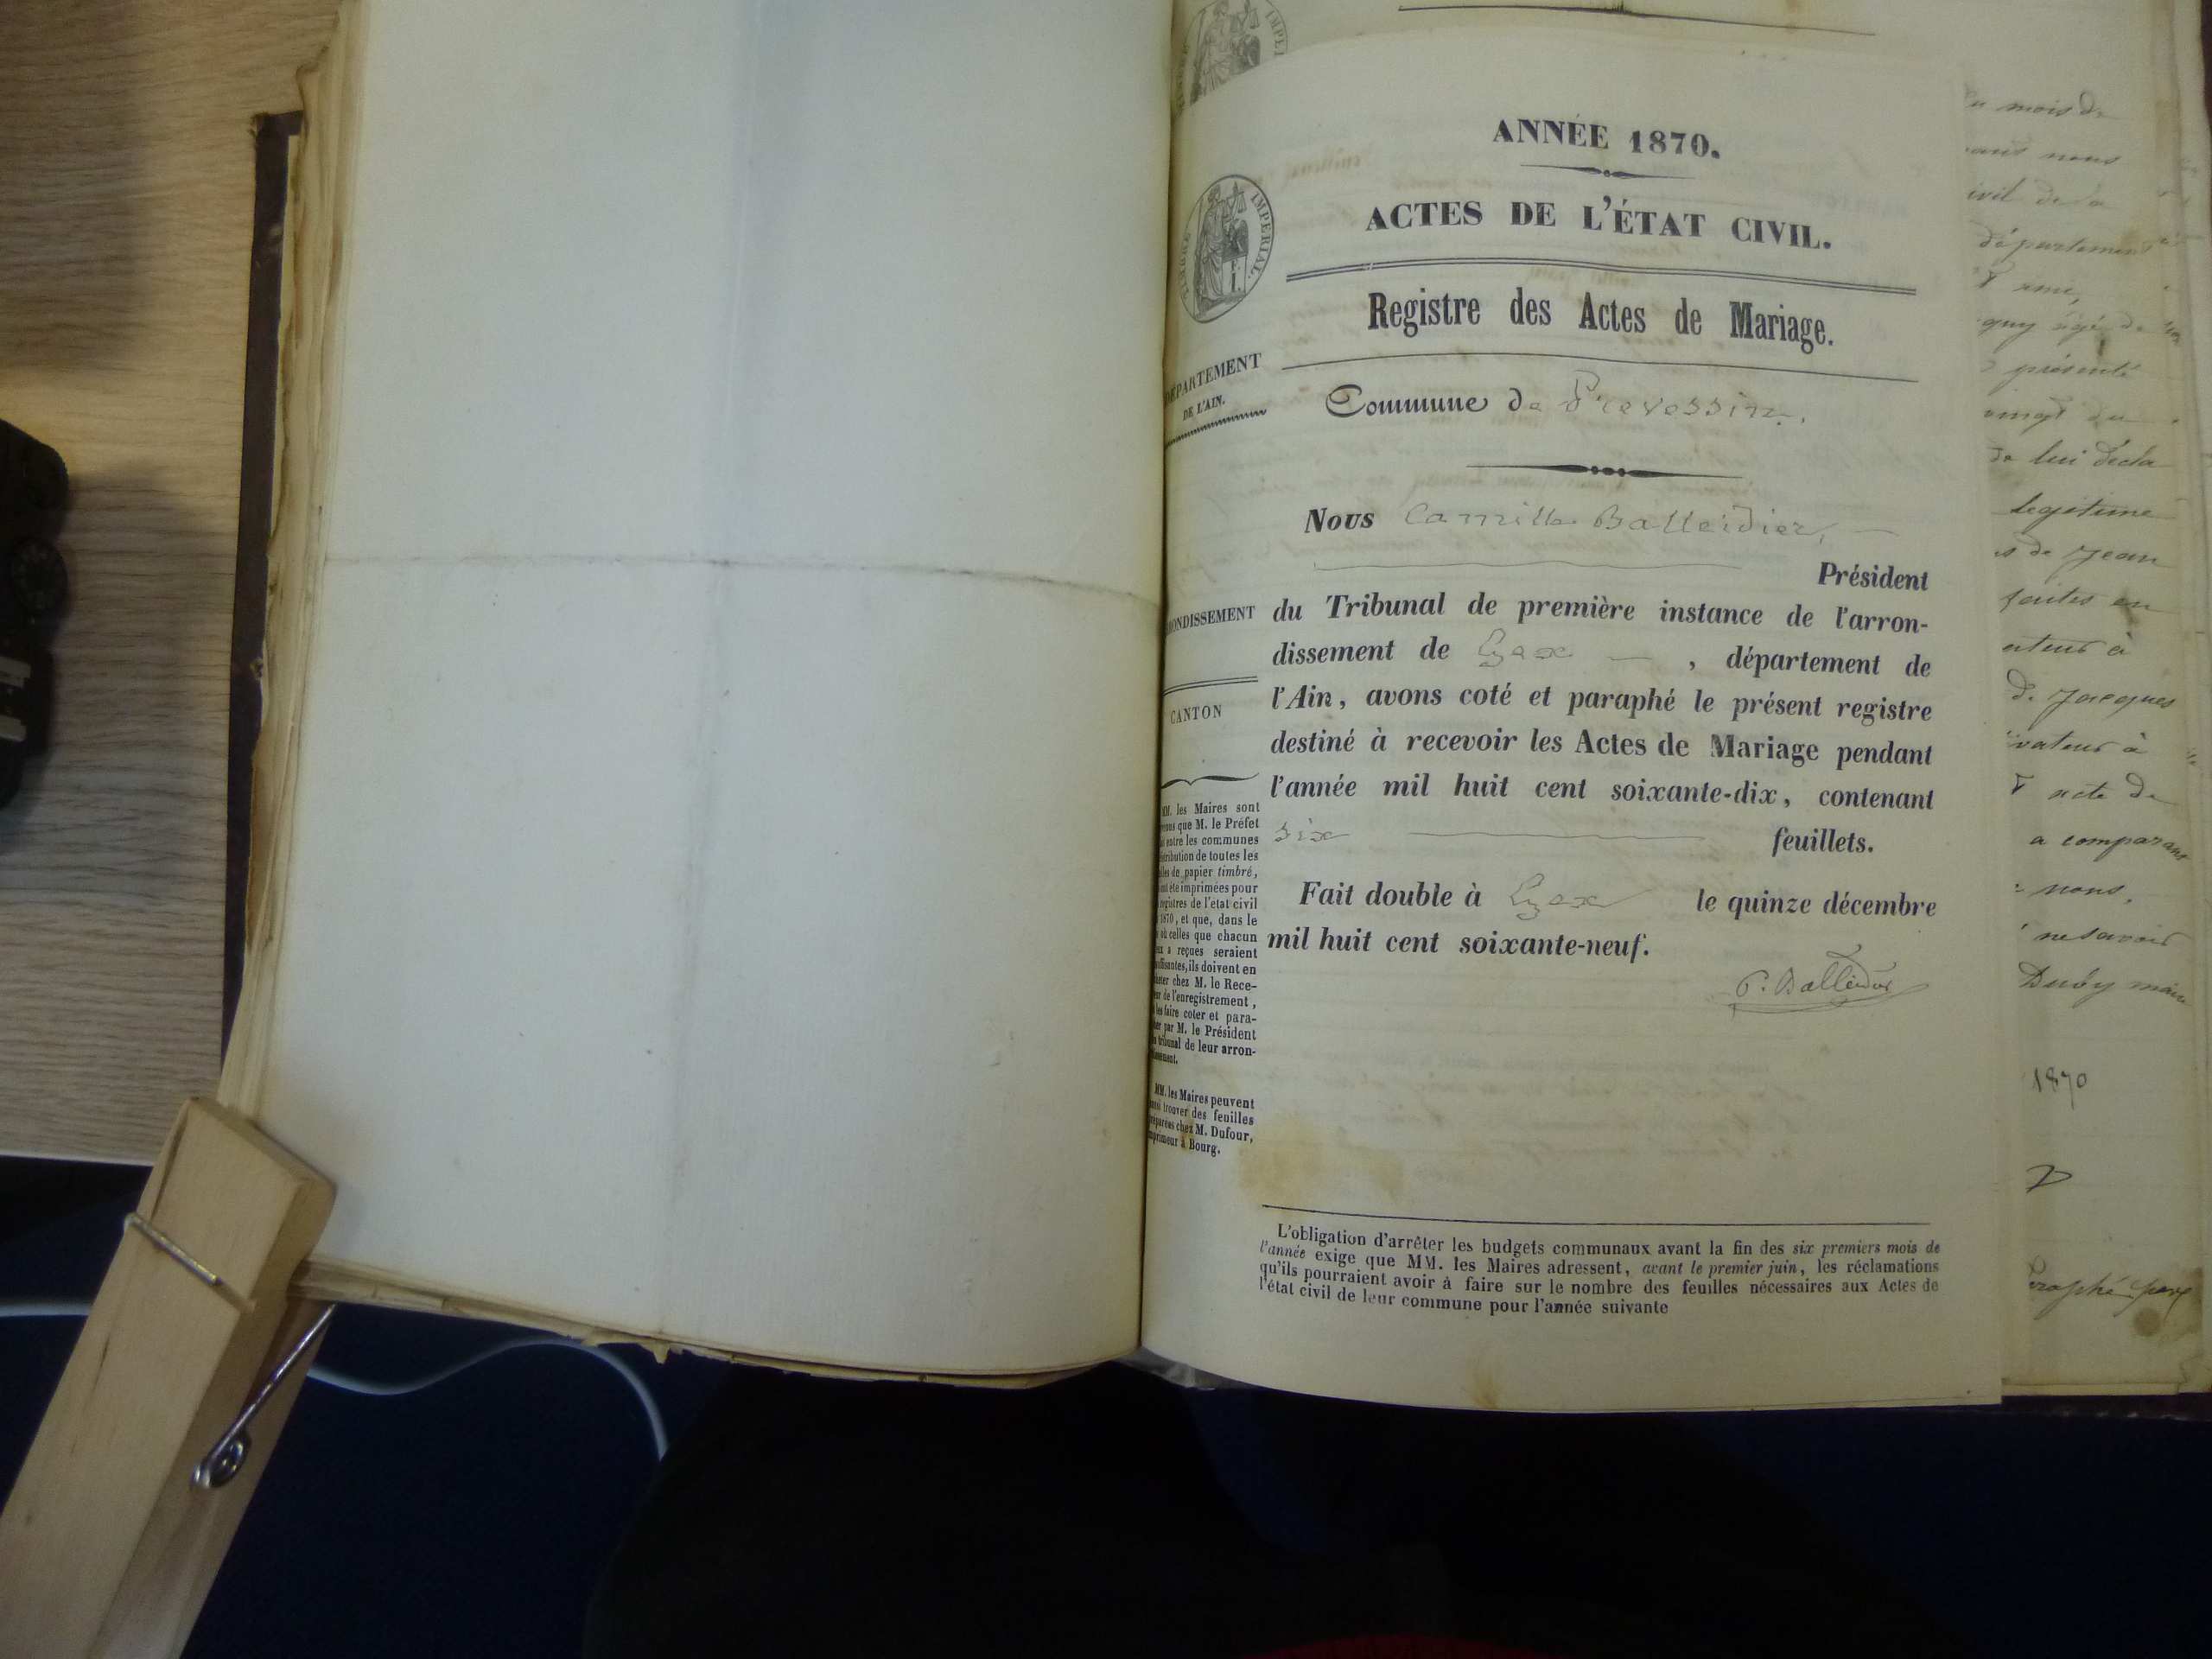 ANNÉE 1870.
ACTES DE L'ÉTAT CIVIL.
TIMBRE IMPÉRIAL.
Registre des Actes de Mariage.
DÉPARTEMENT
DE L'AIN.
Commune de Prevessin.
Nous Camille Balleidier,
Président
du Tribunal de première instance de l'arron-
dissement de Gex, département de
l'Ain, avons coté et paraphé le présent registre
destiné à recevoir les Actes de Mariage pendant
l'année mil huit cent soixante-dix, contenant
six feuillets.
Fait double à Gex le quinze décembre
mil huit cent soixante-neuf.
C. Balleidier
ONDISSEMENT
CANTON
MM. les Maires sont
que M. le Préfet
entre les communes
tribution de toutes les
les de papier timbré,
ont été imprimées pour
registres de l'état civil
1870, et que, dans le
où celles que chacun
a reçues seraient
uffisantes, ils doivent en
chez M. le Rece-
de l'enregistrement,
les faire coter et para-
par M. le Président
tribunal de leur arron-
dissement.
MM. les Maires peuvent
trouver des feuilles
chez M. Dufour,
imprimeur à Bourg.
L'obligation d'arrêter les budgets communaux avant la fin des six premiers mois de
l'année exige que MM. les Maires adressent, avant le premier juin, les réclamations
qu'ils pourraient avoir à faire sur le nombre des feuilles nécessaires aux Actes de
l'état civil de leur commune pour l'année suivante
mois de
nous
de la
département
présenté
vingt du
lui décla
legitime
de Jean
en
à
de Jacques
à
acte de
a comparant
nous,
ne savoir
Duby maire
1870